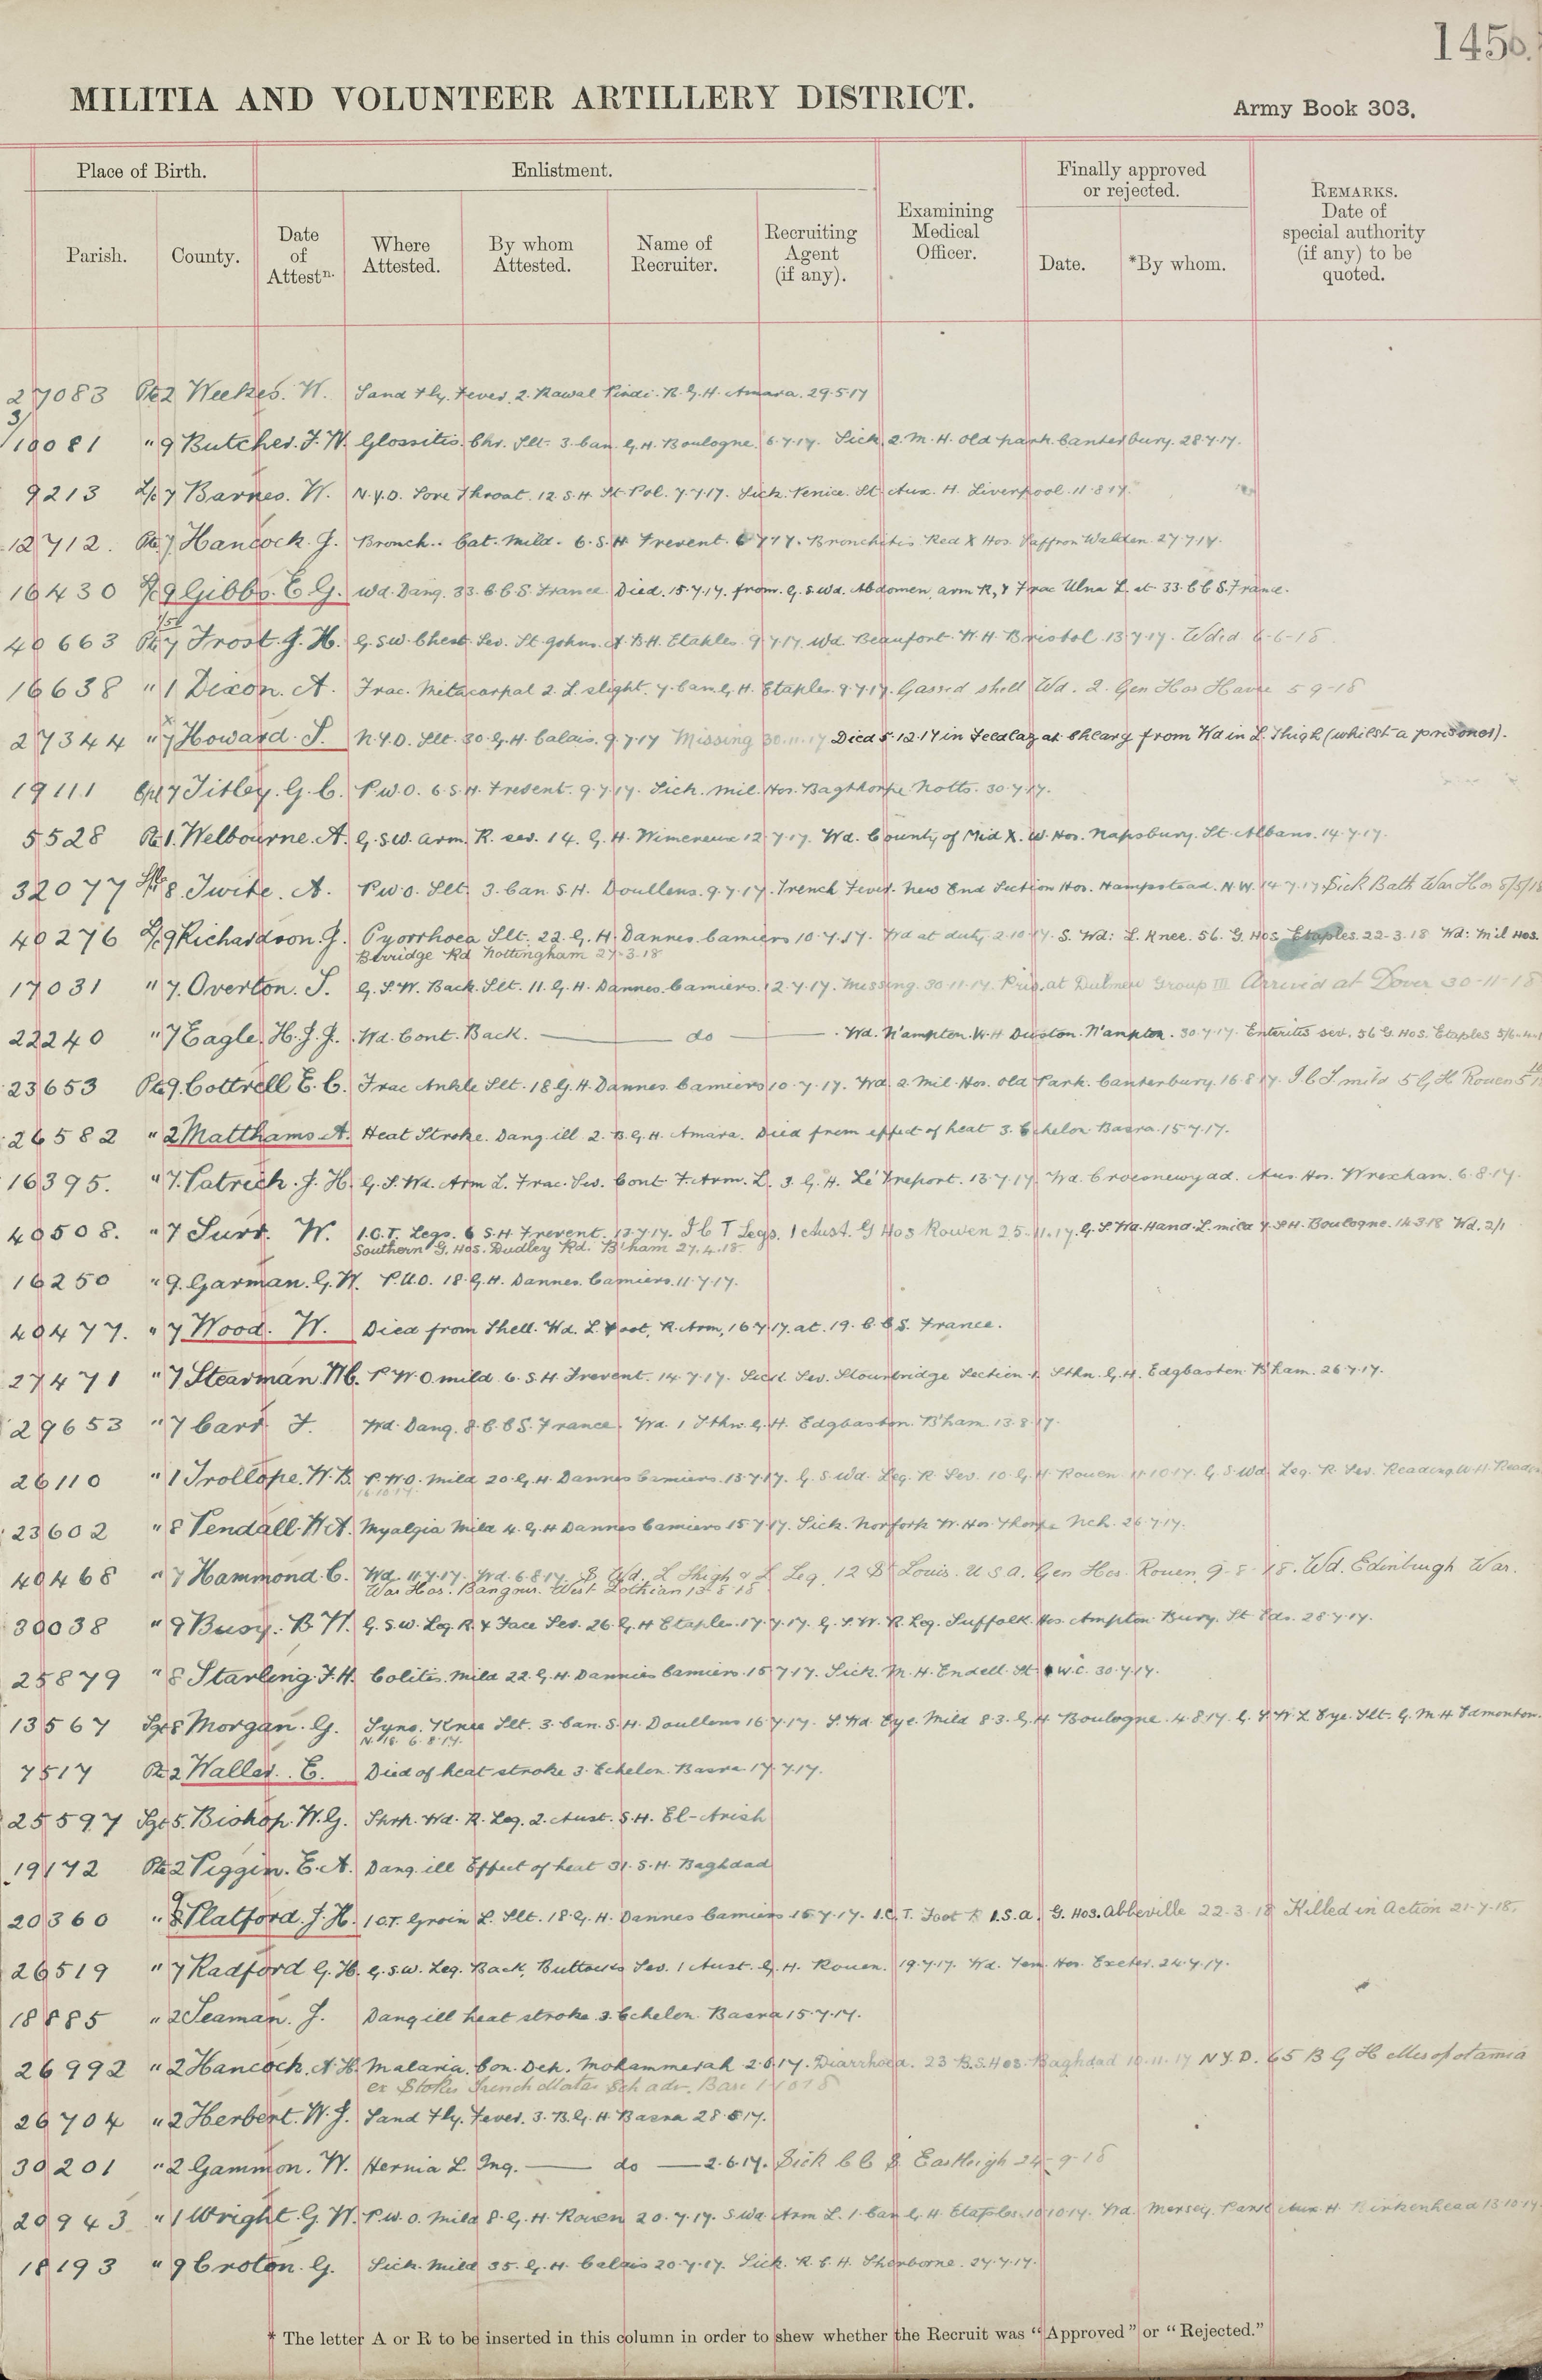 145b.
MILITIA AND VOLUNTEER ARTILLERY DISTRICT.
Army Book 303.
Place of Birth.
Enlistment.
Finally approved
or rejected.
Parish.
County.
Date
of
Attestn.
Where
Attested.
By whom
Attested.
Name of
Recruiter.
Recruiting
Agent
(if any).
Examining
Medical
Officer.
Date.
*By whom.
REMARKS.
Date of
special authority
(if any) to be
quoted.
27083 Pte 2 Weekes. W. Sand Fly. Fever. 2. Rawal Pindi. B.G.H. Amara. 29.5.17
3/10081 " 9 Butcher. F. W. Glossitis. Chr. Slt. 3. Can. G.H. Boulogne. 6.7.17. Sick. 2. M. H. Old park Canterbury. 28.7.17.
9213 L/c 7 Barnes. W. N.Y.D. Sore Throat. 12. S.H. St. Pol. 7.7.17. Sick. Venice. St. Aux. H. Liverpool. 11.8.17.
12712. Pte 7 Hancock. J. Bronch.. Cat. Mild. 6. S.H. Frevent. 6 7 17. Bronchitis Red X Hos. Saffron Walden. 27 7 17.
16430 L/c 9 Gibbs. E. G. Wd. Dang. 33. C.C.S. France. Died. 15.7.17. from. G.S.Wd. Abdomen, arm R, & Frac Ulna L. at 33. C C S. France.
40663 Pte 7 Frost. J. H. G.S.W. Chest. Sev. St. Johns. A.B.H. Etables. 9 7 17. Wd. Beaufort. W.H. Bristol. 13.7.17. Wd.d 6-6-18
16638 " 1 Dixon. A. Frac. Metacarpal 2. L. slight. 7. Can. G. H. Etaples. 9.7.17. Gassed shell Wd. 2. Gen Hos Havre 5 9-18
27344 " 7 Howard. S. N.Y.D. Slt. 30. G.H. Calais. 9 7 17 Missing 30.11.17 Died 5.12.17 in at from Wd in L. Thigh (whilst a prisoner).
19111 Cpl 7 Titley. G. C. P.U.O. 6. S.H. Frevent. 9.7.17. Sick. Mil. Hos. Bagthorpe Notts. 30.7.17.
5528 Pte 1. Welbourne. A. G.S.W. Arm. R. sev. 14. G. H. Wimereux 12.7.17. Wd. County of Mid X. W. Hos. Napsbury. St. Albans. 14.7.17.
32077 8. Twite. A. P.U.O. Slt. 3. Can. S.H. Doullens. 9.7.17. Trench Fever. New End Section Hos. Hampstead. N.W. 14.7.17 Sick Bath War Hos 8/5/18
40276 L/c 9 Richardson. J. Pyorrhoea Slt. 22. G. H. Dannes. Camiers 10.7.17. Wd at duty 2.10.17. S. Wd: L. Knee. 56. G. Hos Etaples. 22-3.18 Wd: Mil Hos.
Berridge Rd Nottingham 27.3.18
17031 " 7. Overton. S. G.S.W. Back. Slt. 11. G. H. Dannes. Camiers. 12.7.17. Missing. 30.11.17. Pris. at Dulmen Group III Arrived at Dover 30-11-18
22240 " 7 Eagle. H. J. J. Wd. Cont. Back. — do — Wd. N'ampton. W.H Duston. N'ampton. 30.7.17. Enteritis sev. 56 G. Hos. Etaples
23653 Pte 9. Cottrell E. C. Frac Ankle Slt. 18 G. H. Dannes. Camiers 10.7.17. Wd. 2. Mil. Hos. Old Park. Canterbury. 16.8.17. I.C.T. mild 5 G H Rouen
26582 " 2 Matthams. A. Heat Stroke. Dang. ill 2. B.G.H. Amara. Died from effect of heat 3. Echelon Basra. 15.7.17.
16395. " 7. Patrick. J. H. G.S.Wd. Arm L. Frac. Sev. Cont. F. Arm. L. 3. G. H. Le Treport. 13.7.17. Wd. Croesnewydd. Aux. Hos. Wrexham. 6.8.17.
40508. " 7 Surr. W. I.C.T. Legs. 6 S.H Frevent. 13.7.17. I C T Legs. 1 Aust. G Hos Rouen 25.11.17. G.S.Wd. Hand. L. mild 7. S H. Boulogne. 14.3.18 Wd. 2/1
Southern G. Hos. Dudley Rd. B'ham 27.4.18.
16250 " 9. Garman. G. W. P.U.O. 18. G. H. Dannes. Camiers. 11.7.17.
40477. " 7 Wood. W. Died from Shell. Wd. L. Foot, R. Arm, 16.7.17. at. 19. C.C.S. France.
27471 " 7 Stearman. P.U.O mild 6. S.H Frevent. 14.7.17. Sick Sev. Stourbridge Section 1. Sthn. G. H. Edgbaston. B'ham. 26.7.17.
29653 " 7 Carr F. Wd. Dang. 8. C.C.S. France. Wd. 1 Sthn. G. H. Edgbaston. B'ham. 13.8.17.
26110 " 1 Trollope. W. B. P.U.O. Mild 20. G. H. Dannes Camiers. 13.7.17. G.S.Wd. Leg. R. Sev. 10. G. H Rouen 11.10.17. G.S.Wd Leg. R. Sev. Reading. W.H. Reading
16.10.17.
23602 " 8 Pendall. W. A. Myalgia Mild 4. G. H Dannes Camiers 15.7.17. Sick. Norfolk W. Hos. Thorpe Nch. 26 7 17.
40468 " 7 Hammond. C. Wd. 11.7.17. Wd. 6.8.17. S. Wd. L Thigh & L Leg. 12 St Louis. U S A. Gen Hos. Rouen. 9-8-18. Wd. Edinburgh War.
War Hos. Bangour. West Lothian 13 8 18
30038 " 9 Busy. B. W. G.S.W. Leg. R. & Face Sev. 26. G. H Etaples. 17.7.17. G.S.W. R. Leg. Suffolk Hos. Ampton Bury. St Eds. 28.7.17.
25879 " 8 Starling. F. H. Colitis. Mild 22. G. H. Dannes Camiers. 15 7 17. Sick. M. H. Endell. St W.C. 30.7.17.
13567 Sgt 8 Morgan. G. Syno. Knee Slt. 3. Can. S.H. Doullens 16.7.17. S. Wd. Eye. Mild 83. G. H Boulogne. 4.8.17. G. S W L Eye. Slt. G. M H Edmonton.
N. 18. 6.8.17.
7517 Pte 2 Waller. E. Died of heat stroke 3. Echelon. Basra 17.7.17.
25597 Sgt 5. Bishop. W. G. Shrp. Wd. R. Leg. 2. Aust. S.H. El-Arish
19172 Pte 2 Piggin. E. A. Dang. ill Effect of heat 31. S.H. Baghdad
20360 " 9 Platford. J. H. I.C.T. Groin L. Slt. 18. G. H. Dannes Camiers 15.7.17. I.C.T. Foot R I.S.A. G. Hos. Abbeville 22-3-18 Killed in Action 21-7-18.
26519 " 7 Radford G. H. G.S.W. Leg. Back, Buttocks Sev. 1 Aust. G. H. Rouen. 19.7.17. Wd. Tem. Hos. Exeter. 24.7.17.
18885 " 2 Seaman. J. Dang ill heat stroke. 3. Echelon. Basra 15.7.17.
26992 " 2 Hancock. A. H. Malaria. Con. Dep. Mohammerah 2.6.17. Diarrhoea. 23 B.S. Hos. Baghdad 10.11.17 N Y. D. 65 B G H Mesopotamia
ex Stokes Trench Motar Sch adv. Base
26704 " 2 Herbert. W. J. Sand Fly. Fever. 3. B.G.H Basra 28.5.17.
30201 " 2 Gammon. W. Hernia L. Ing. — do — 2.6.17. Sick C C S Eastleigh 24-9-18
20943 " 1 Wright. G. W. P.U.O. Mild 8. G. H. Rouen 20.7.17. S Wd. Arm L. 1. Can G. H. Etaples. 10.10.17. Wd. Mersey. Park Aux. H. Birkenhead 13.10.17
18193 " 9 Croton. G. Sick. Mild 35. G. H. Calais 20.7.17. Sick. R. C. H. Sherborne. 27.7.17.
* The letter A or R to be inserted in this column in order to shew whether the Recruit was “Approved” or “Rejected.”